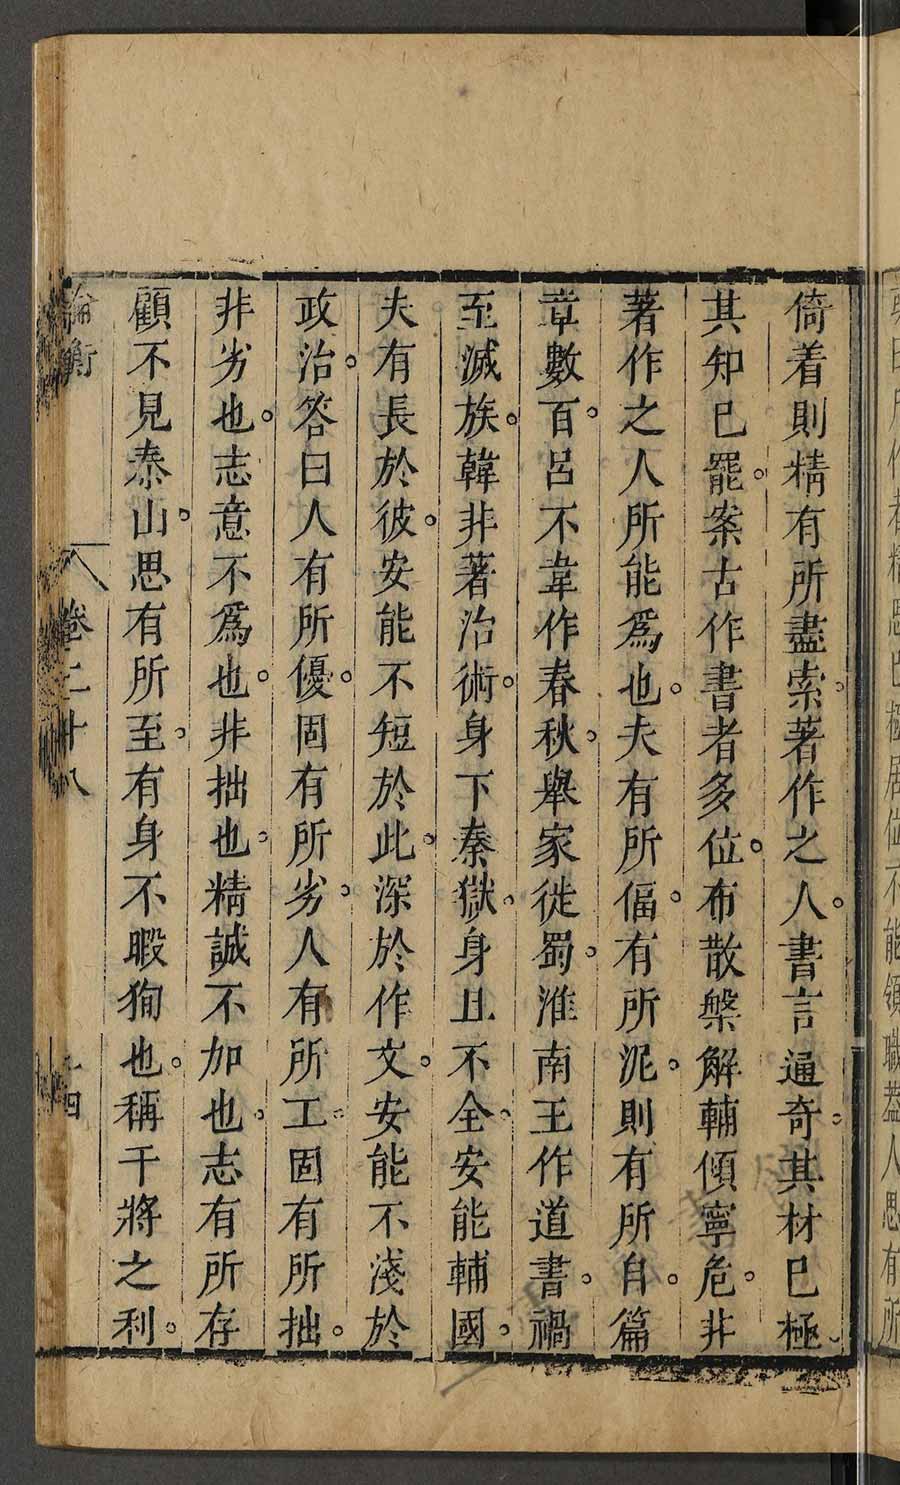 倚着則精有所盡索著作之人書言通奇其材已極
其知已罷案古作書者多位布散槃解輔傾寧危非
著作之人所能爲也夫有所偪有所泥則有所自篇
章數百呂不韋作春秋舉家徙蜀淮南王作道書禍
至滅族韓非著治術身下秦獄身且不全安能輔國
夫有長於彼安能不短於此深於作文安能不淺於
政治答曰人有所優固有所劣人有所工固有所拙
非劣也志意不爲也非拙也精誠不加也志有所存
顧不見泰山思有所至有身不暇狥也稱干將之利
論衡 卷二十八 十四